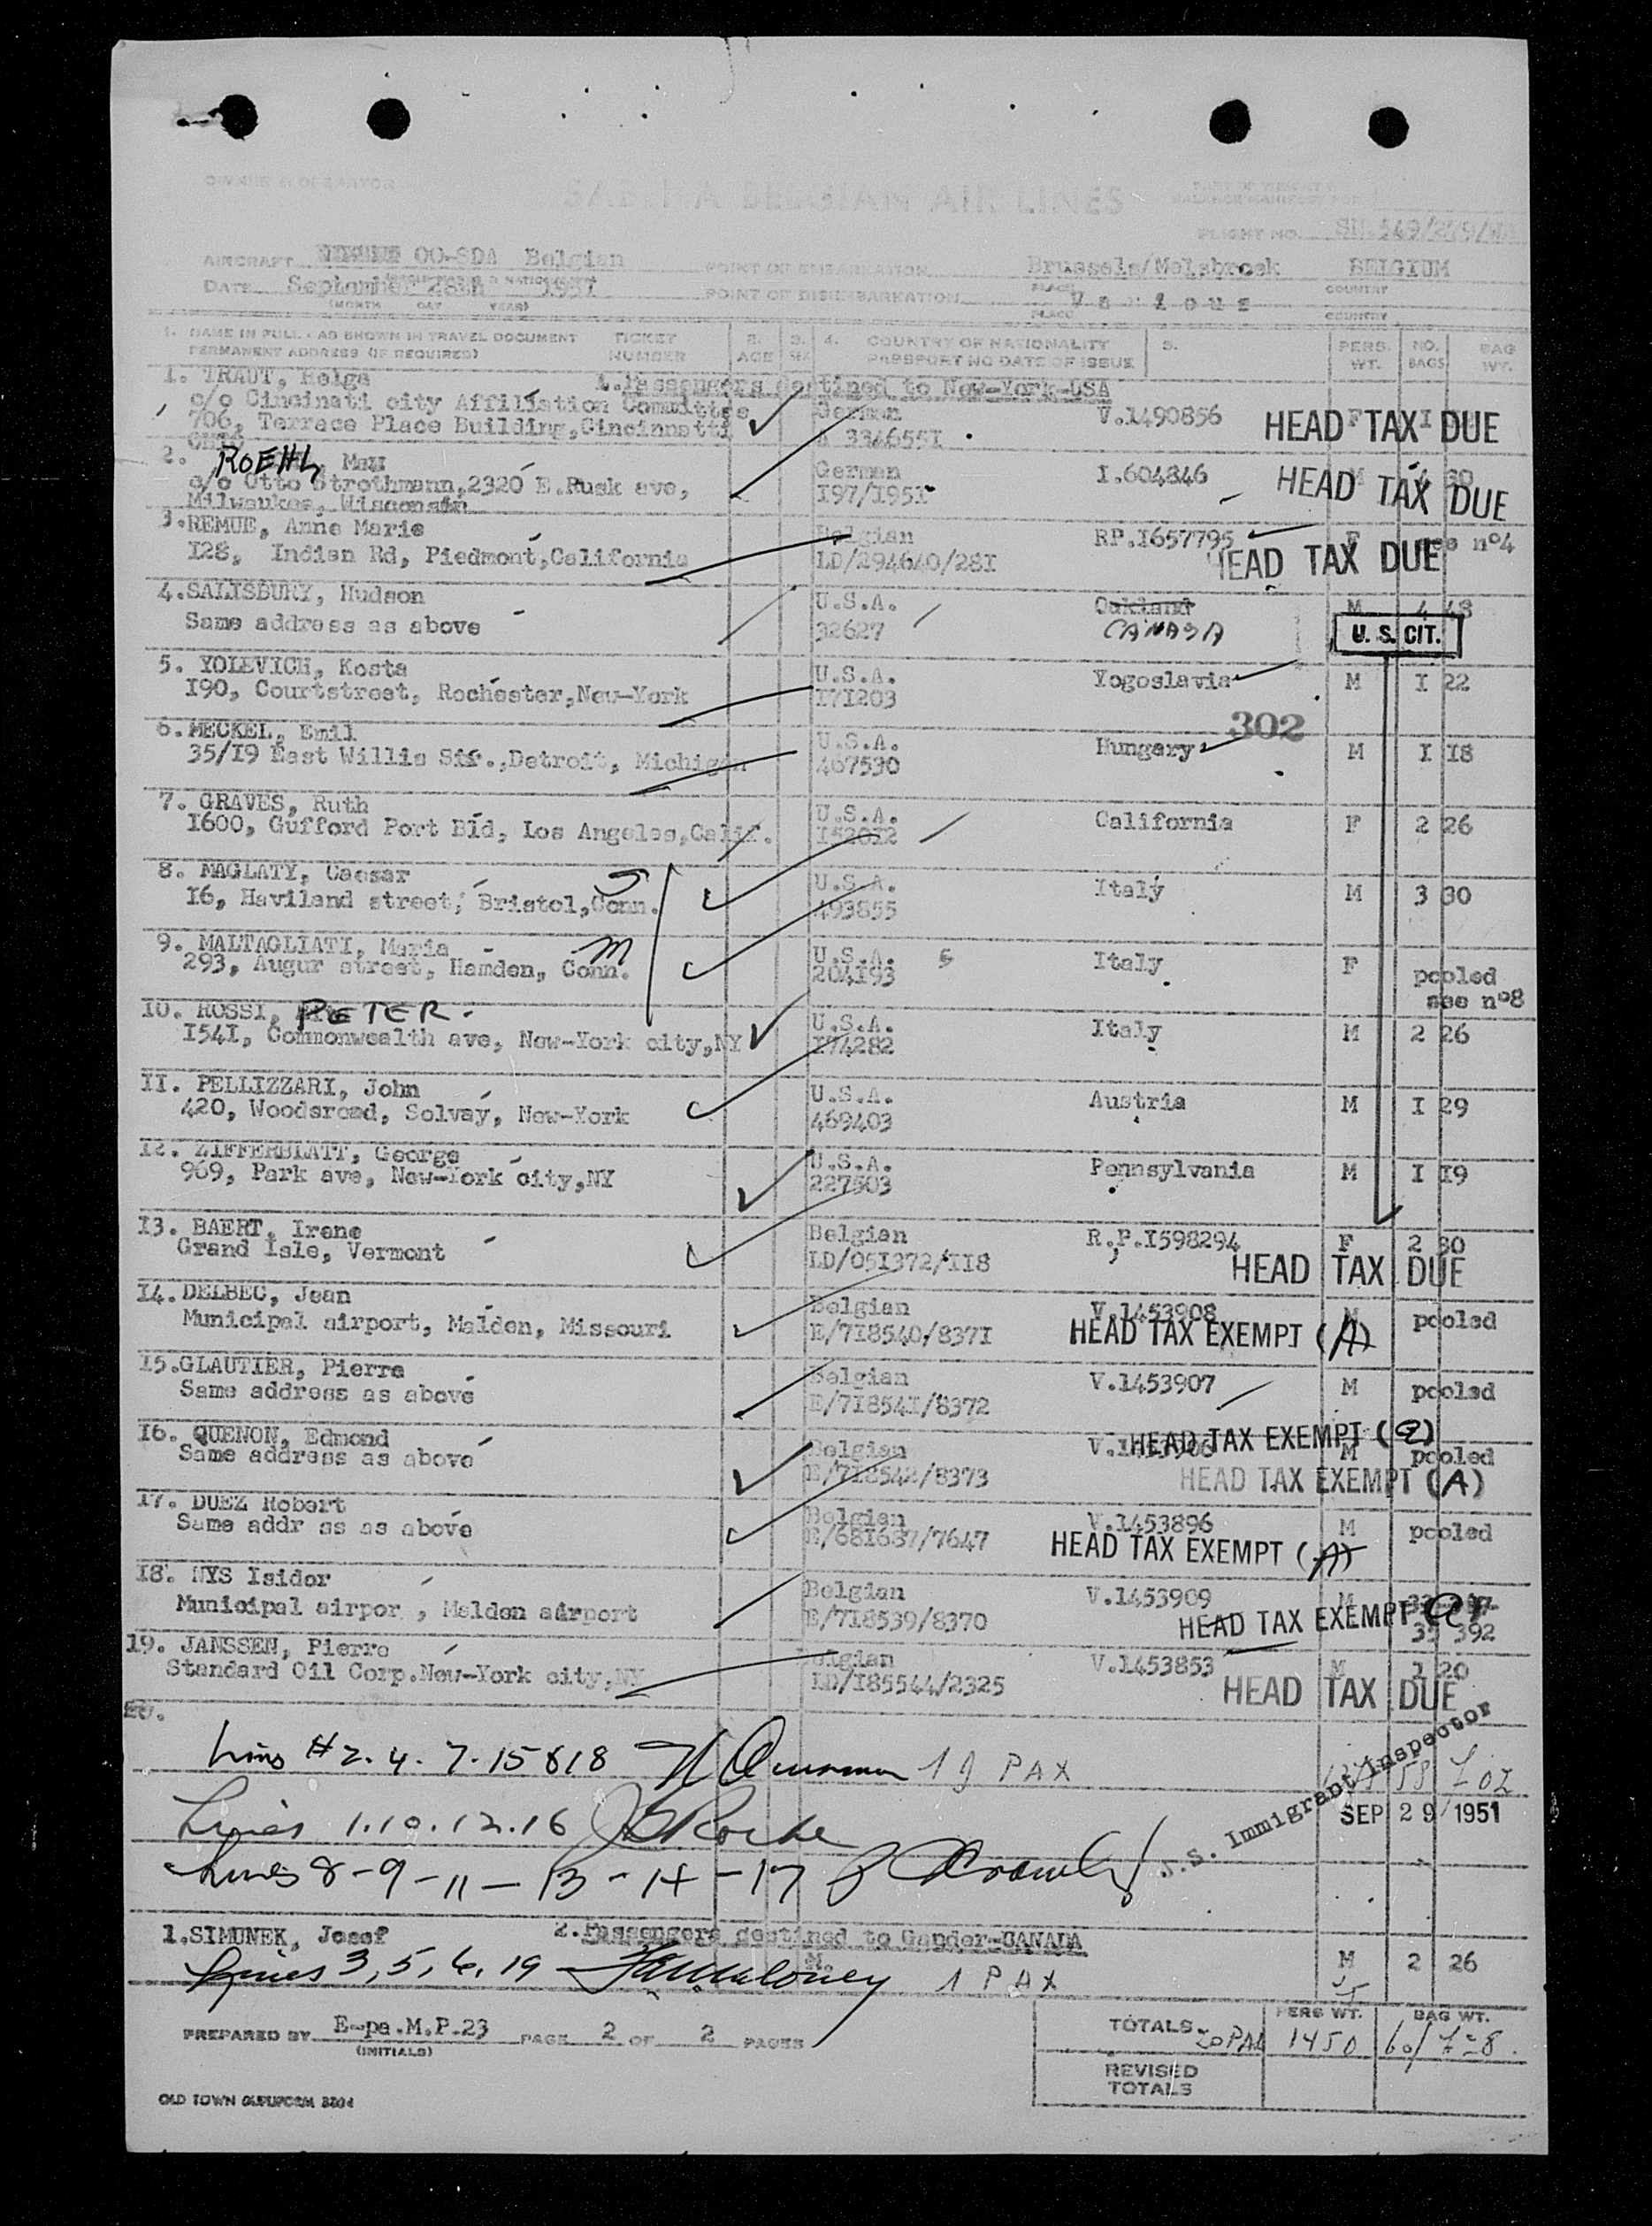 OWNER OR OPERATOR
SABENA BELGIAN AIR LINES
FLIGHT NO.
AIRCRAFT OO-SDA Belgian
POINT OF EMBARKATION Brussels/Melsbroek BELGIUM
DATE September 28th 1951
(MONTH DAY YEAR)
POINT OF DISEMBARKATION Various
PLACE COUNTRY
1. NAME IN FULL - AS SHOWN IN TRAVEL DOCUMENT TICKET 2. 3. 4. COUNTRY OF NATIONALITY 5. PERS. NO. BAG
PERMANENT ADDRESS (IF REQUIRED) NUMBER AGE SEX PASSPORT NO DATE OF ISSUE WT. BAGS WT.
1. Passengers destined to New-York-USA
1. TRAUT, Helga
c/o Cincinati city Affiliation Committee German V.1490856 HEAD TAX DUE
706, Terrace Place Building, Cincinnatti A 3346551 F I
2. ROEHL, Max German I.604846 M
c/o Otto Strothmann, 2320 E.Rusk ave, I97/1951 HEAD TAX DUE
Milwaukee, Wisconsin
3. REMUE, Anne Marie Belgian RP.I657795 F see n°4
I28, Indian Rd, Piedmont, California LD/294640/28I HEAD TAX DUE
4. SALISBURY, Hudson U.S.A. Oakland M 4 48
Same address as above 32627 CANADA U. S. CIT.
5. YOLEVICH, Kosta U.S.A. Yogoslavia M I 22
I90, Courtstreet, Rochester, New-York I7I203
302
6. MECKEL, Emil U.S.A. Hungary M I I8
35/I9 East Willis Str., Detroit, Michigan 467530
7. GRAVES, Ruth U.S.A. California F 2 26
I600, Gufford Port Bld, Los Angeles, Calif. I520I2
8. MAGLATY, Caesar S U.S.A. Italy M 3 30
I6, Haviland street, Bristol, Conn. 493855
9. MALTAGLIATI, Maria M U.S.A. Italy F pooled
293, Augur street, Hamden, Conn. 204I93 see n°8
10. ROSSI, PETER U.S.A. Italy M 2 26
I54I, Commonwealth ave, New-York city, NY I74282
II. PELLIZZARI, John U.S.A. Austria M I 29
420, Woodsroad, Solvay, New-York 469403
I2. ZIFFERBLATT, George U.S.A. Pennsylvania M I I9
969, Park ave, New-York city, NY 227503
I3. BAERT, Irene Belgian R.P.I598294 F 2 30
Grand Isle, Vermont LD/05I372/II8 HEAD TAX DUE
I4. DELBEC, Jean Belgian V.1453908 M pooled
Municipal airport, Malden, Missouri E/7I8540/837I HEAD TAX EXEMPT (A)
I5. GLAUTIER, Pierre Belgian V.1453907 M pooled
Same address as above E/7I854I/8372
HEAD TAX EXEMPT
I6. QUENON, Edmond Belgian M pooled
Same address as above E/7I8542/8373 HEAD TAX EXEMPT (A)
I7. DUEZ Robert Belgian V.1453896 M pooled
Same addr ss as above E/68I637/7647 HEAD TAX EXEMPT (A)
I8. NYS Isidor Belgian V.1453909 M
Municipal airpor , Malden airport E/7I8539/8370 HEAD TAX EXEMPT
35 392
I9. JANSSEN, Pierre Belgian V.1453853 M I 20
Standard Oil Corp.New-York city, NY LD/I85544/2325 HEAD TAX DUE
20.
Lines # 2. 4. 7. 15 & 18 19 PAX
U.S. Immigrant Inspector
Lines 1.10.12.16 J Roche SEP 29 1951
Lines 8-9-11-13-14-17
2. Passengers destined to Gander-CANADA
1. SIMUNEK, Josef M. M 2 26
Lines 3, 5, 6, 19 Maloney 1 PAX
PREPARED BY E-pa.M.P.23 PAGE 2 OF 2 PAGES
(INITIALS)
TOTALS 20 PAX PERS WT. 1450 BAG WT.
REVISED TOTALS
OLD TOWN